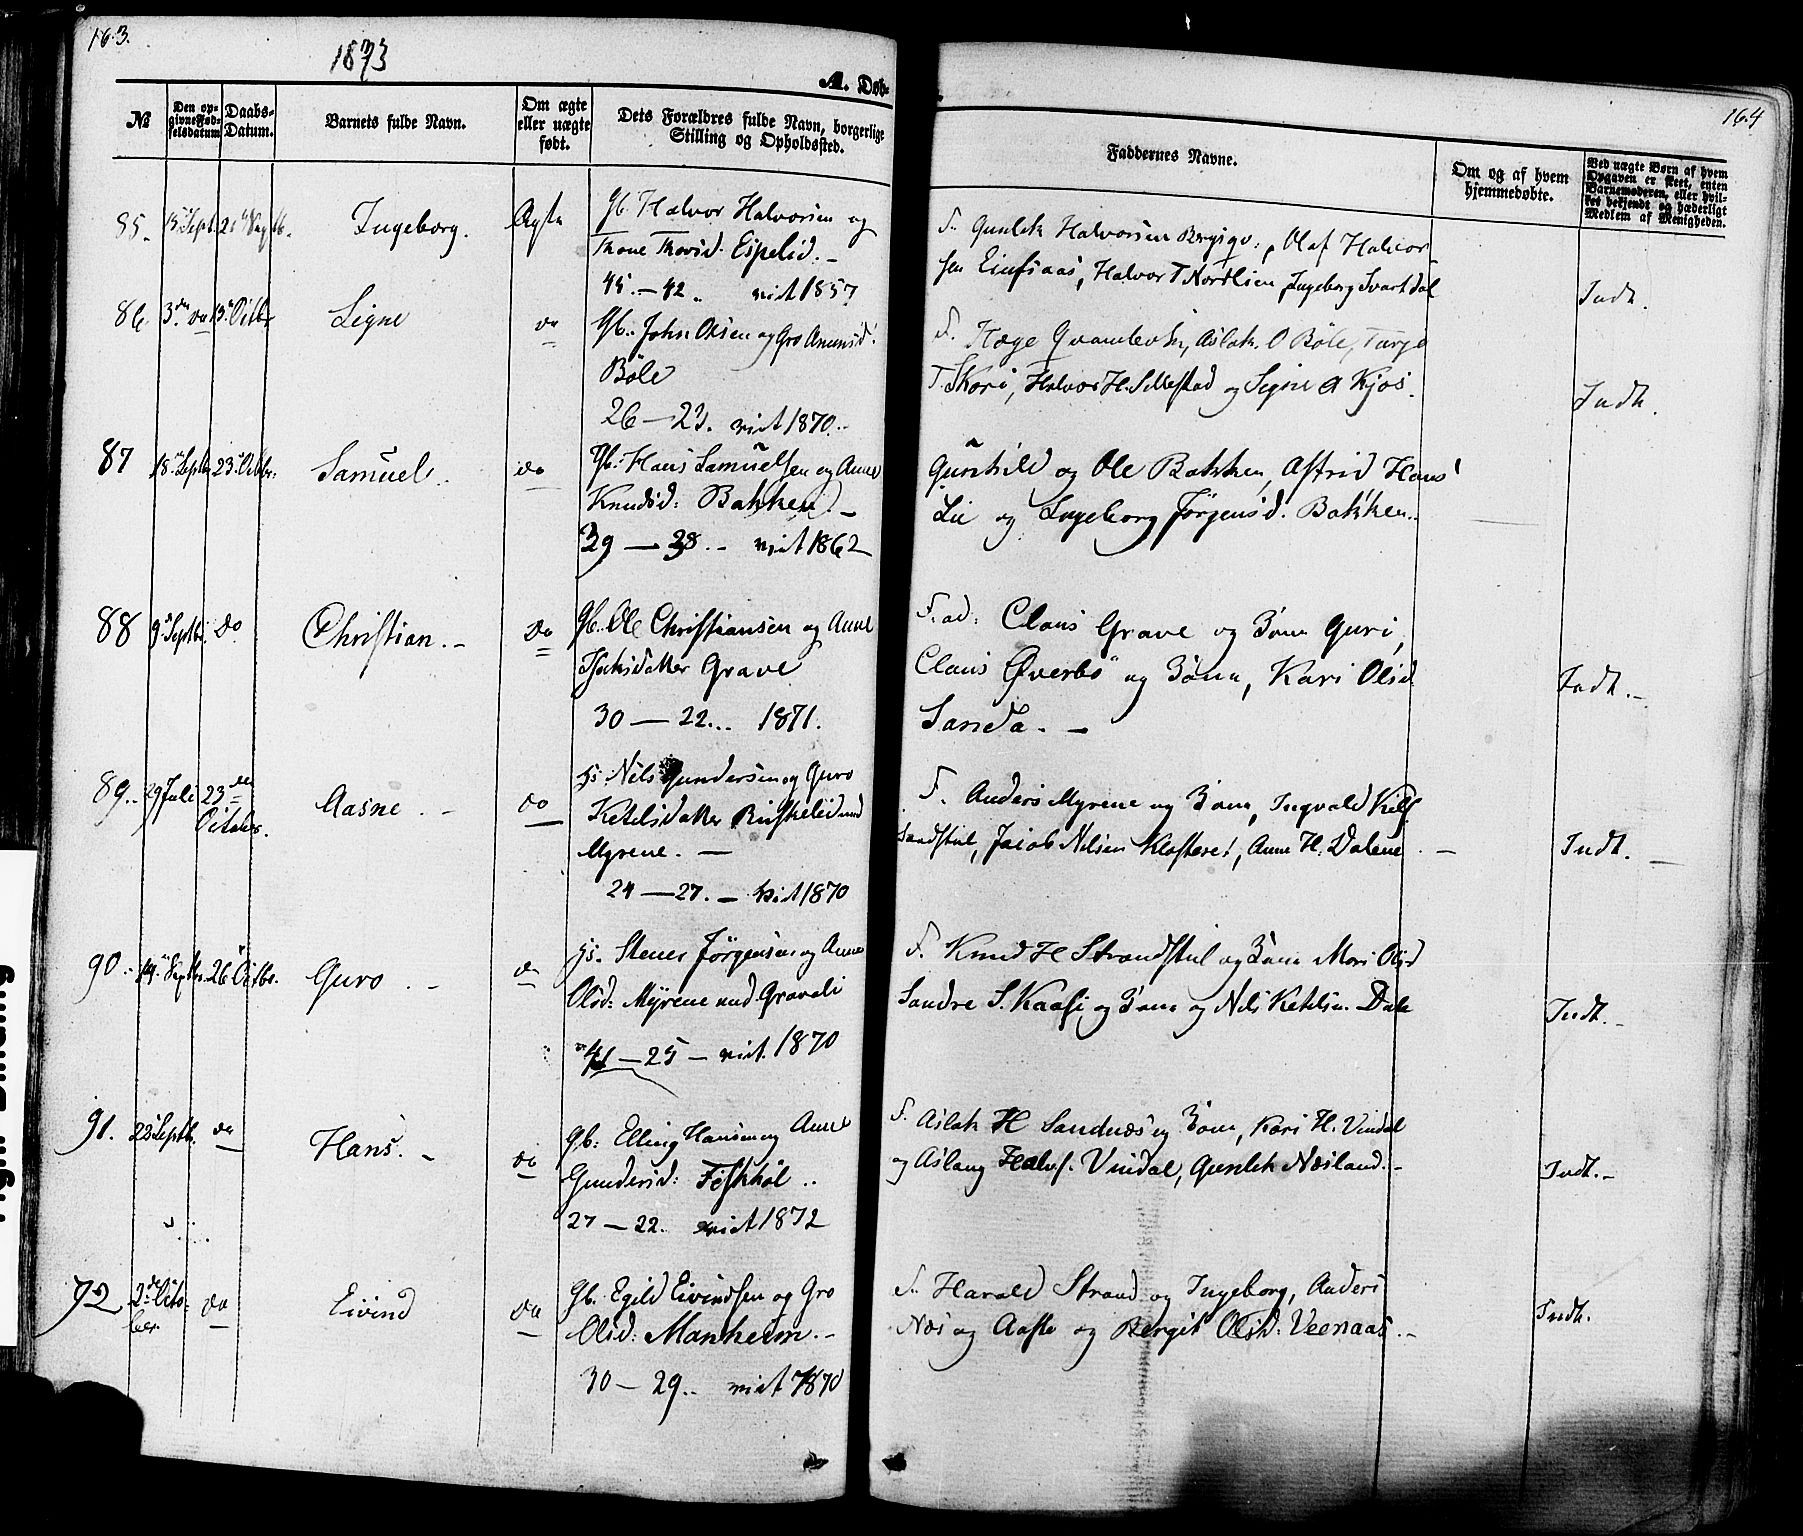 163.
1873
A. Døb-
№
Den op-
givne Fød-
selsdatum
Daabs-
Datum.
Barnets fulde Navn.
Om ægte
eller uægte
født.
Dets Forældres fulde Navn, borgerlige
Stilling og Opholdssted.
164
Faddernes Navne.
Om og af hvem
hjemmedøbte.
Ved uægte Børn af hvem
Opgaven er skeet, enten
Barnemoderen, eller hvil-
ket bekjendt og hæderligt
Medlem af Menigheden.
85. 15 Sept. Ingeborg. Ægte Gb. Halvor Halvorsen og
Thone Thorsd. Espelid. –
45. – 42. viet 1857
F. Gunlek Halvorsen , Olaf Halvor
sen Einfsaas, Halvor T Nordlien, Ingeborg Svartdal
Indt.
86. 3die do 13 Octbr Signe do Gb. John Olsen og Gro Amunsd.
Böle
26 – 23. viet 1870. –
F. Hæge , Aslak O Böle, Turge
T. Skori, Halvor H. Sillestad og Signe A Kjos.
Indt.
87 18 Septbr 23 Octbr. Samuel. do Gb. Hans Samuelsen og Anne
Knudsd: Bakken. –
39 – 38. – viet 1862
Gunhild og Ole Bakken, Astrid Hans
Lie og Ingeborg Jørgensd. Bakken.
88 9 Septbr. do Christian. – do Gb. Ole Christiansen og Anne
Isaksdatter Grave
30 – 22... 1871.
Fad: Claus Grave og Kone Guri,
Claus Øverbö og Kone, Kari Olsd
Sanda. –
Indt. –
89. 29 Juli 23de
October. Aasne. – do Js. Nels Gundersen og Guro
Ketelsdatter Riiskelid und
Myrene. –
24 – 27. – viet 1870
F. Anders Myrene og Kone, Ingvald Kils
Sandstul, Jacob Nilsen Klosteret, Anne H. Dalene. –
Indt. –
90. 14 Septbr. 26 Octbr. Guro. – do Js. Stener Jørgensen og Anne
Olsd: Myrene und Gravli
41 – 25 – viet. 1870
F. Knud H Strandstul og Kone Mari Olsd
Sandre S. Kaasi og Kone og Nils Ketilsen Dale
Indt. –
91. 23 Septb. do Hans. – do Gb: Elling Hansen og Anne
Gundersd: Fiskhöl..
27 – 22. viet 1872
F. Aslak H Sandnes og Kone, Kari H. Vindal
og Aslaug Halvs. Vindal, Gunlek Næsland. –
Indt. –
92 2de Octo-
ber. do Eivind do Gb. Egild Eivindsen og Gro
Olsd: Manheim. –
30 – 29.. viet 1870
F. Harald Strand og Ingeborg, Anders
Næs og Aaste og Bergit Olsd: Veenaas. –
Indt.